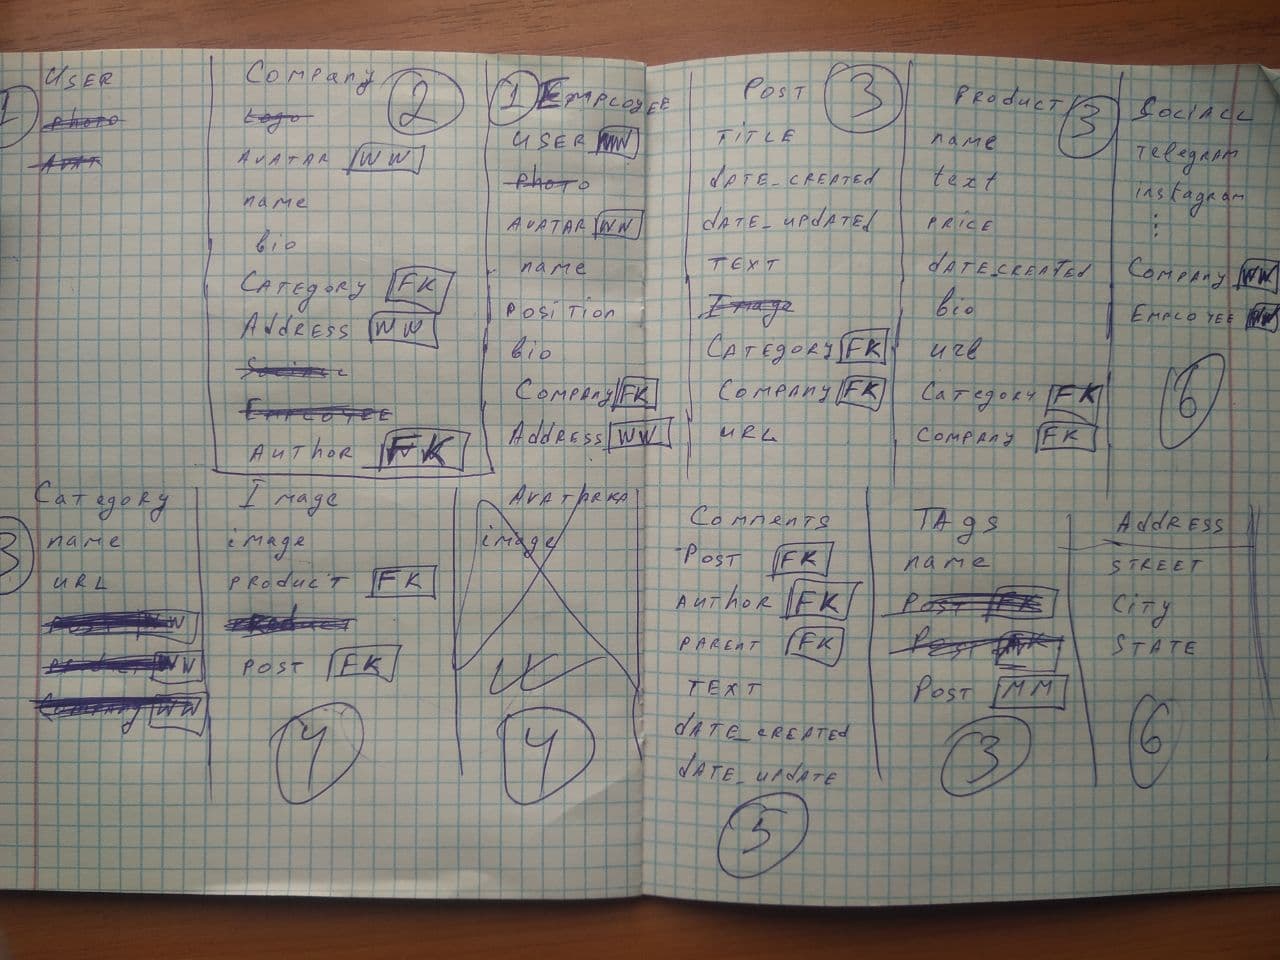 1
USER
photo
AVAT
Company
2
Logo
AVATAR WW
name
bio
CATEGORY FK
Address WW
EMPLOYEE
AUTHOR FK
1
EMPLOYEE
USER WW
photo
AVATAR WW
name
POSITION
bio
Company FK
Address WW
POST
3
TITLE
dATE_CREATEd
dATE_UPdATEd
TEXT
Image
CATEGORY FK
Company FK
URL
PRODUCT
3
name
text
PRICE
dATE_CREATEd
bio
URL
CATEGORY FK
COMPANY FK
SOCIALL
Telegram
instagram
⋮
COMPANY WW
EMPLOYEE WW
6
3
CATEGORY
name
URL
POST WW
PRODUCT WW
Company WW
Image
image
PRODUCT FK
PRODUCT
POST FK
4
AVATARKA
image
4
Comments
POST FK
AUTHOR FK
PARENT FK
TEXT
dATE_CREATEd
dATE_UPdATE
5
TAgs
name
Post FK
Post
Post MM
3
AddRESS
STREET
City
STATE
6